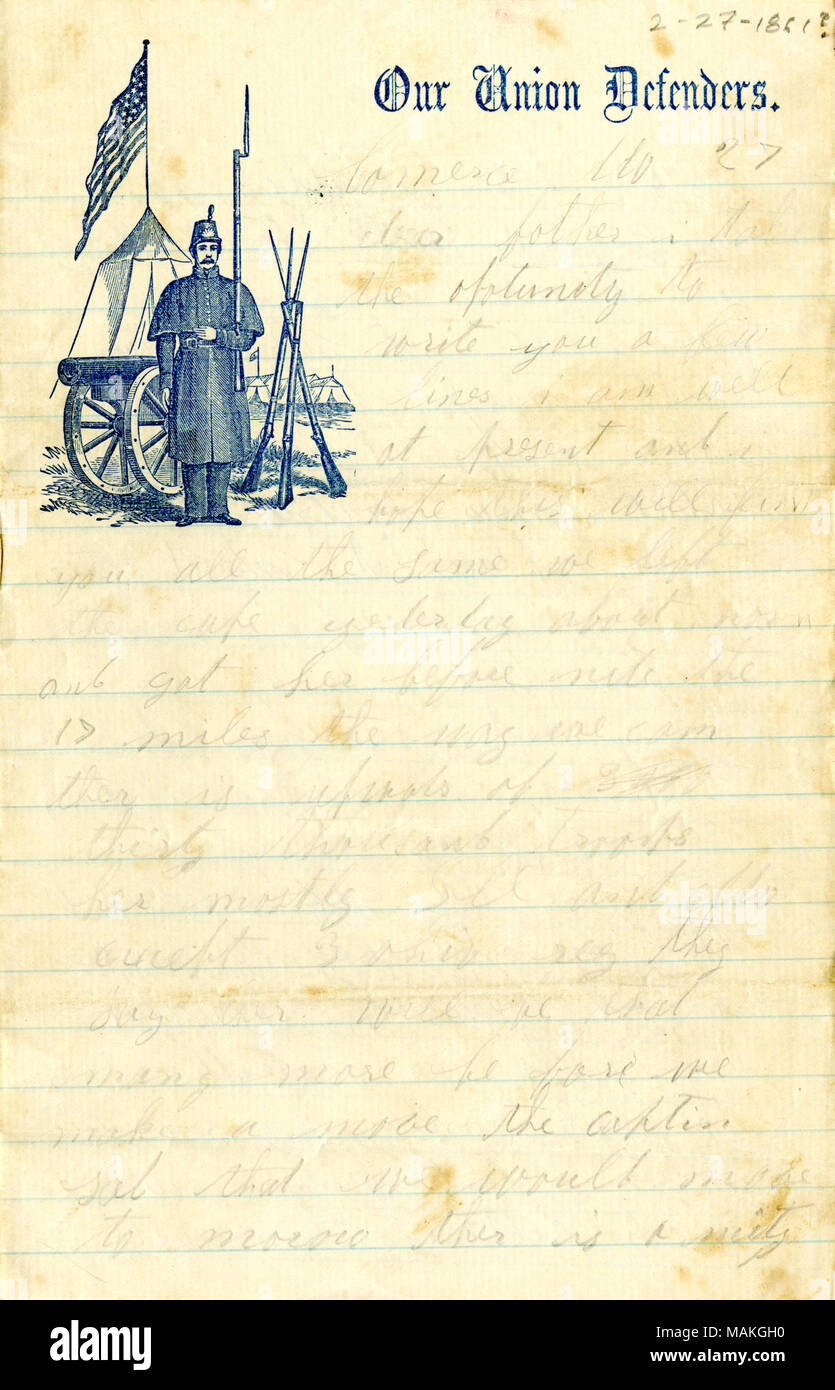 2-27-1861?
Our Union Defenders.
Comerce Mo 27
dear father i take
the opertunity to
write you a few
lines i am well
at present and i
hope this will find
you all the same we left
the cape yesterday about noon
and got her before nite the
17 miles the way we cam
ther is upwards of
thirty thousand troops
her mostly Ill and
except 3 reg they
say ther will be that
many more be fore we
make a move the captin
sad that we would move
to morow ther is a mity
alamy stock photo
Image ID: MAKGH0
www.alamy.com